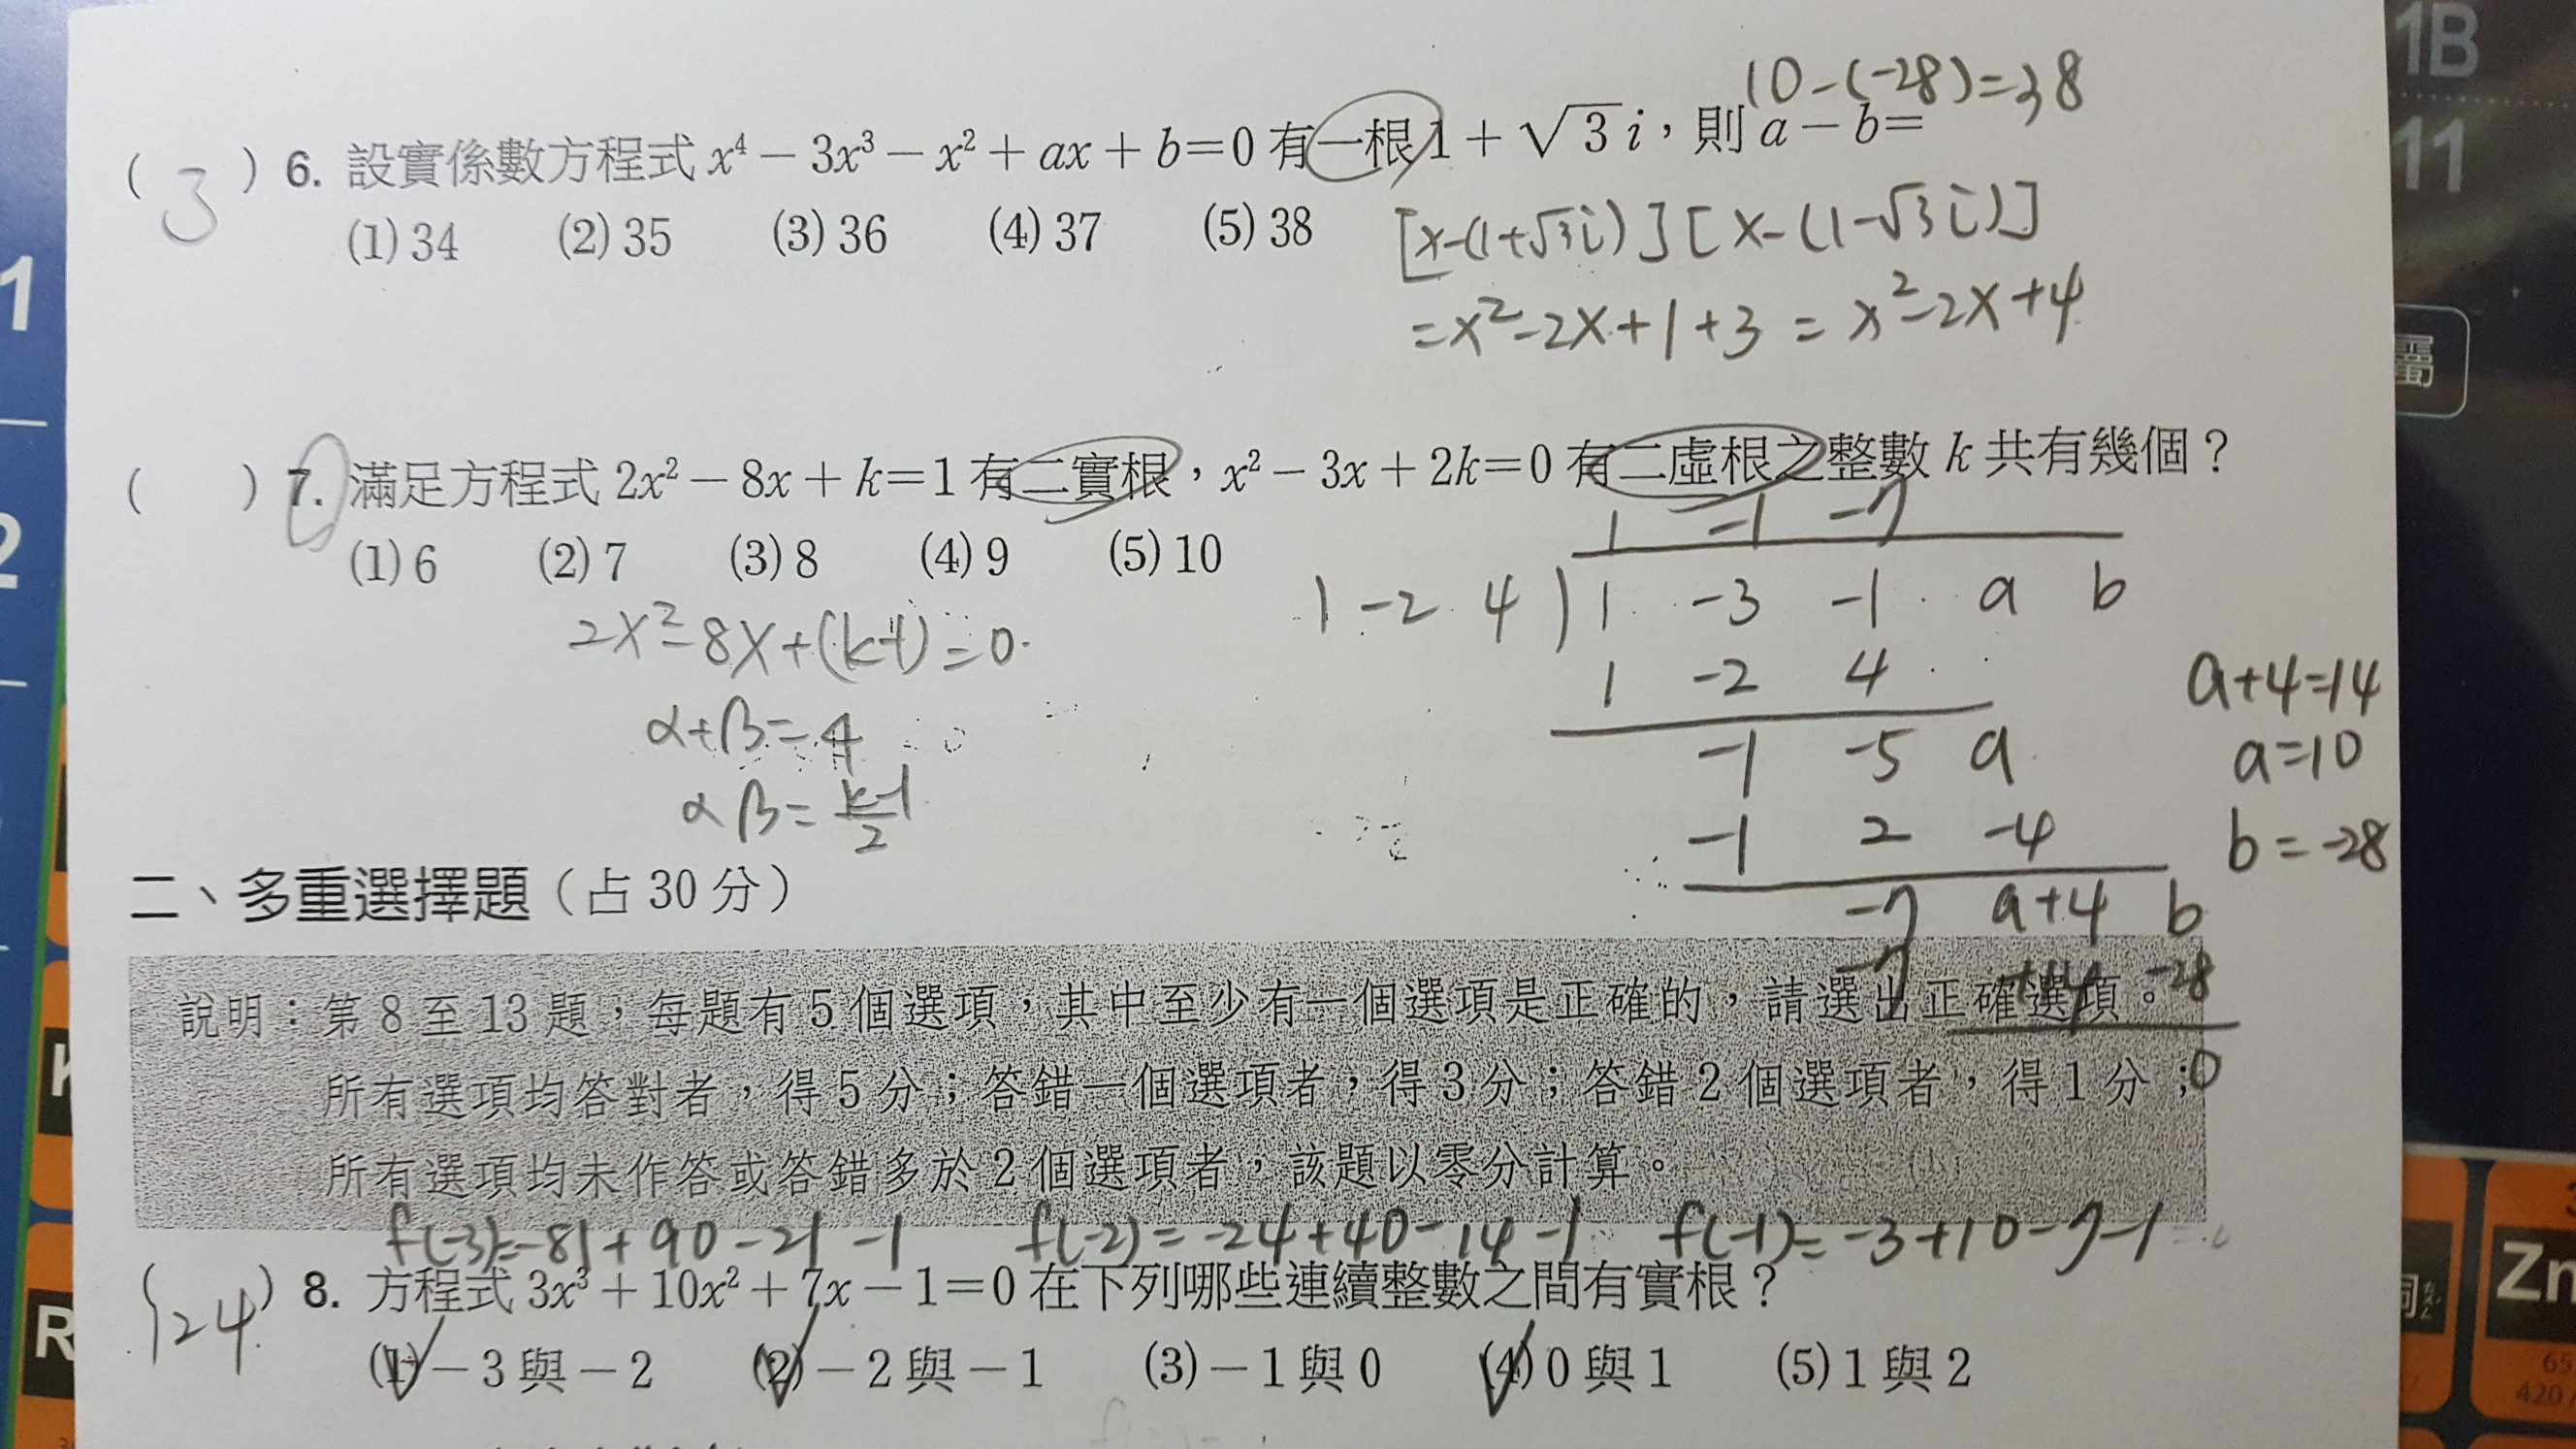 10-(-28)=38
(3) 6. 設實係數方程式 x⁴－3x³－x²＋ax＋b＝0 有一根 1＋√3 i，則 a－b＝
(1) 34 (2) 35 (3) 36 (4) 37 (5) 38
[x-(1+√3i)][x-(1-√3i)]
=x²-2x+1+3=x²-2x+4
( ) 7. 滿足方程式 2x²－8x＋k＝1 有二實根，x²－3x＋2k＝0 有二虛根之整數 k 共有幾個？
(1) 6 (2) 7 (3) 8 (4) 9 (5) 10
2x²-8x+(k-1)=0
α+β=4
αβ=(k-1)/2
1 -1 -7
1 -2 4 ) 1 -3 -1 a b
1 -2 4
-1 -5 a
-1 2 -4
-7 a+4 b
-7 +14 -28
0
a+4=14
a=10
b=-28
二、多重選擇題（占 30 分）
說明：第 8 至 13 題，每題有 5 個選項，其中至少有一個選項是正確的，請選出正確選項。
所有選項均答對者，得 5 分；答錯一個選項者，得 3 分；答錯 2 個選項者，得 1 分；
所有選項均未作答或答錯多於 2 個選項者，該題以零分計算。
f(-3)=-81+90-21-1 f(-2)=-24+40-14-1 f(-1)=-3+10-7-1
(124) 8. 方程式 3x³＋10x²＋7x－1＝0 在下列哪些連續整數之間有實根？
(1)－3 與－2 (2)－2 與－1 (3)－1 與 0 (4) 0 與 1 (5) 1 與 2
1B
11
1
2
K
R
Zn